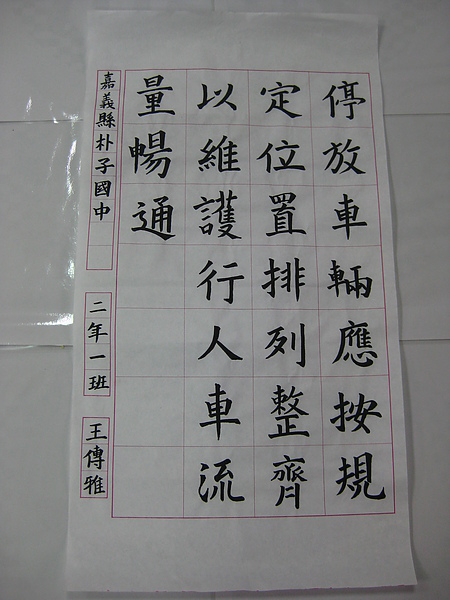 停放車輛應按規
定位置排列整齊
以維護行人車流
量暢通
嘉義縣朴子國中
二年一班
王傳雅